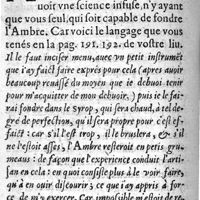 uoit vne science infuse, n'y ayant
que vous seul, qui soit capable de fondre
l'Ambre. Car voici le langage que vous
tenés en la pag. 191. 192. de vostre liu.
Il le faut inciser menu, auec vn petit instrumẽt
que i'ay faict faire exprés pour cela (apres auoir
beaucoup rauassé du moyẽ que ie deboi tenir
pour m'acquitter de mon deboir,) puis le fai-
rai fondre dans le Syrop, qui sera chaud, à tel de-
gre de perfectiõ, qu'il iugera propre pour s'es
faict: car s'il l'est trop, il le bruslera, & s'il
ne l'est assés, l'Ambre resteroit en petis gru-
meaux: de façon que l'experience conduit l'arti-
san en cela: en quoi consiste plus à le voir fairẽ,
qu'à en ouïr discourir; ce que i'ay appris à for-
ce de m'y exercer. Car impossible m'estoit de re-